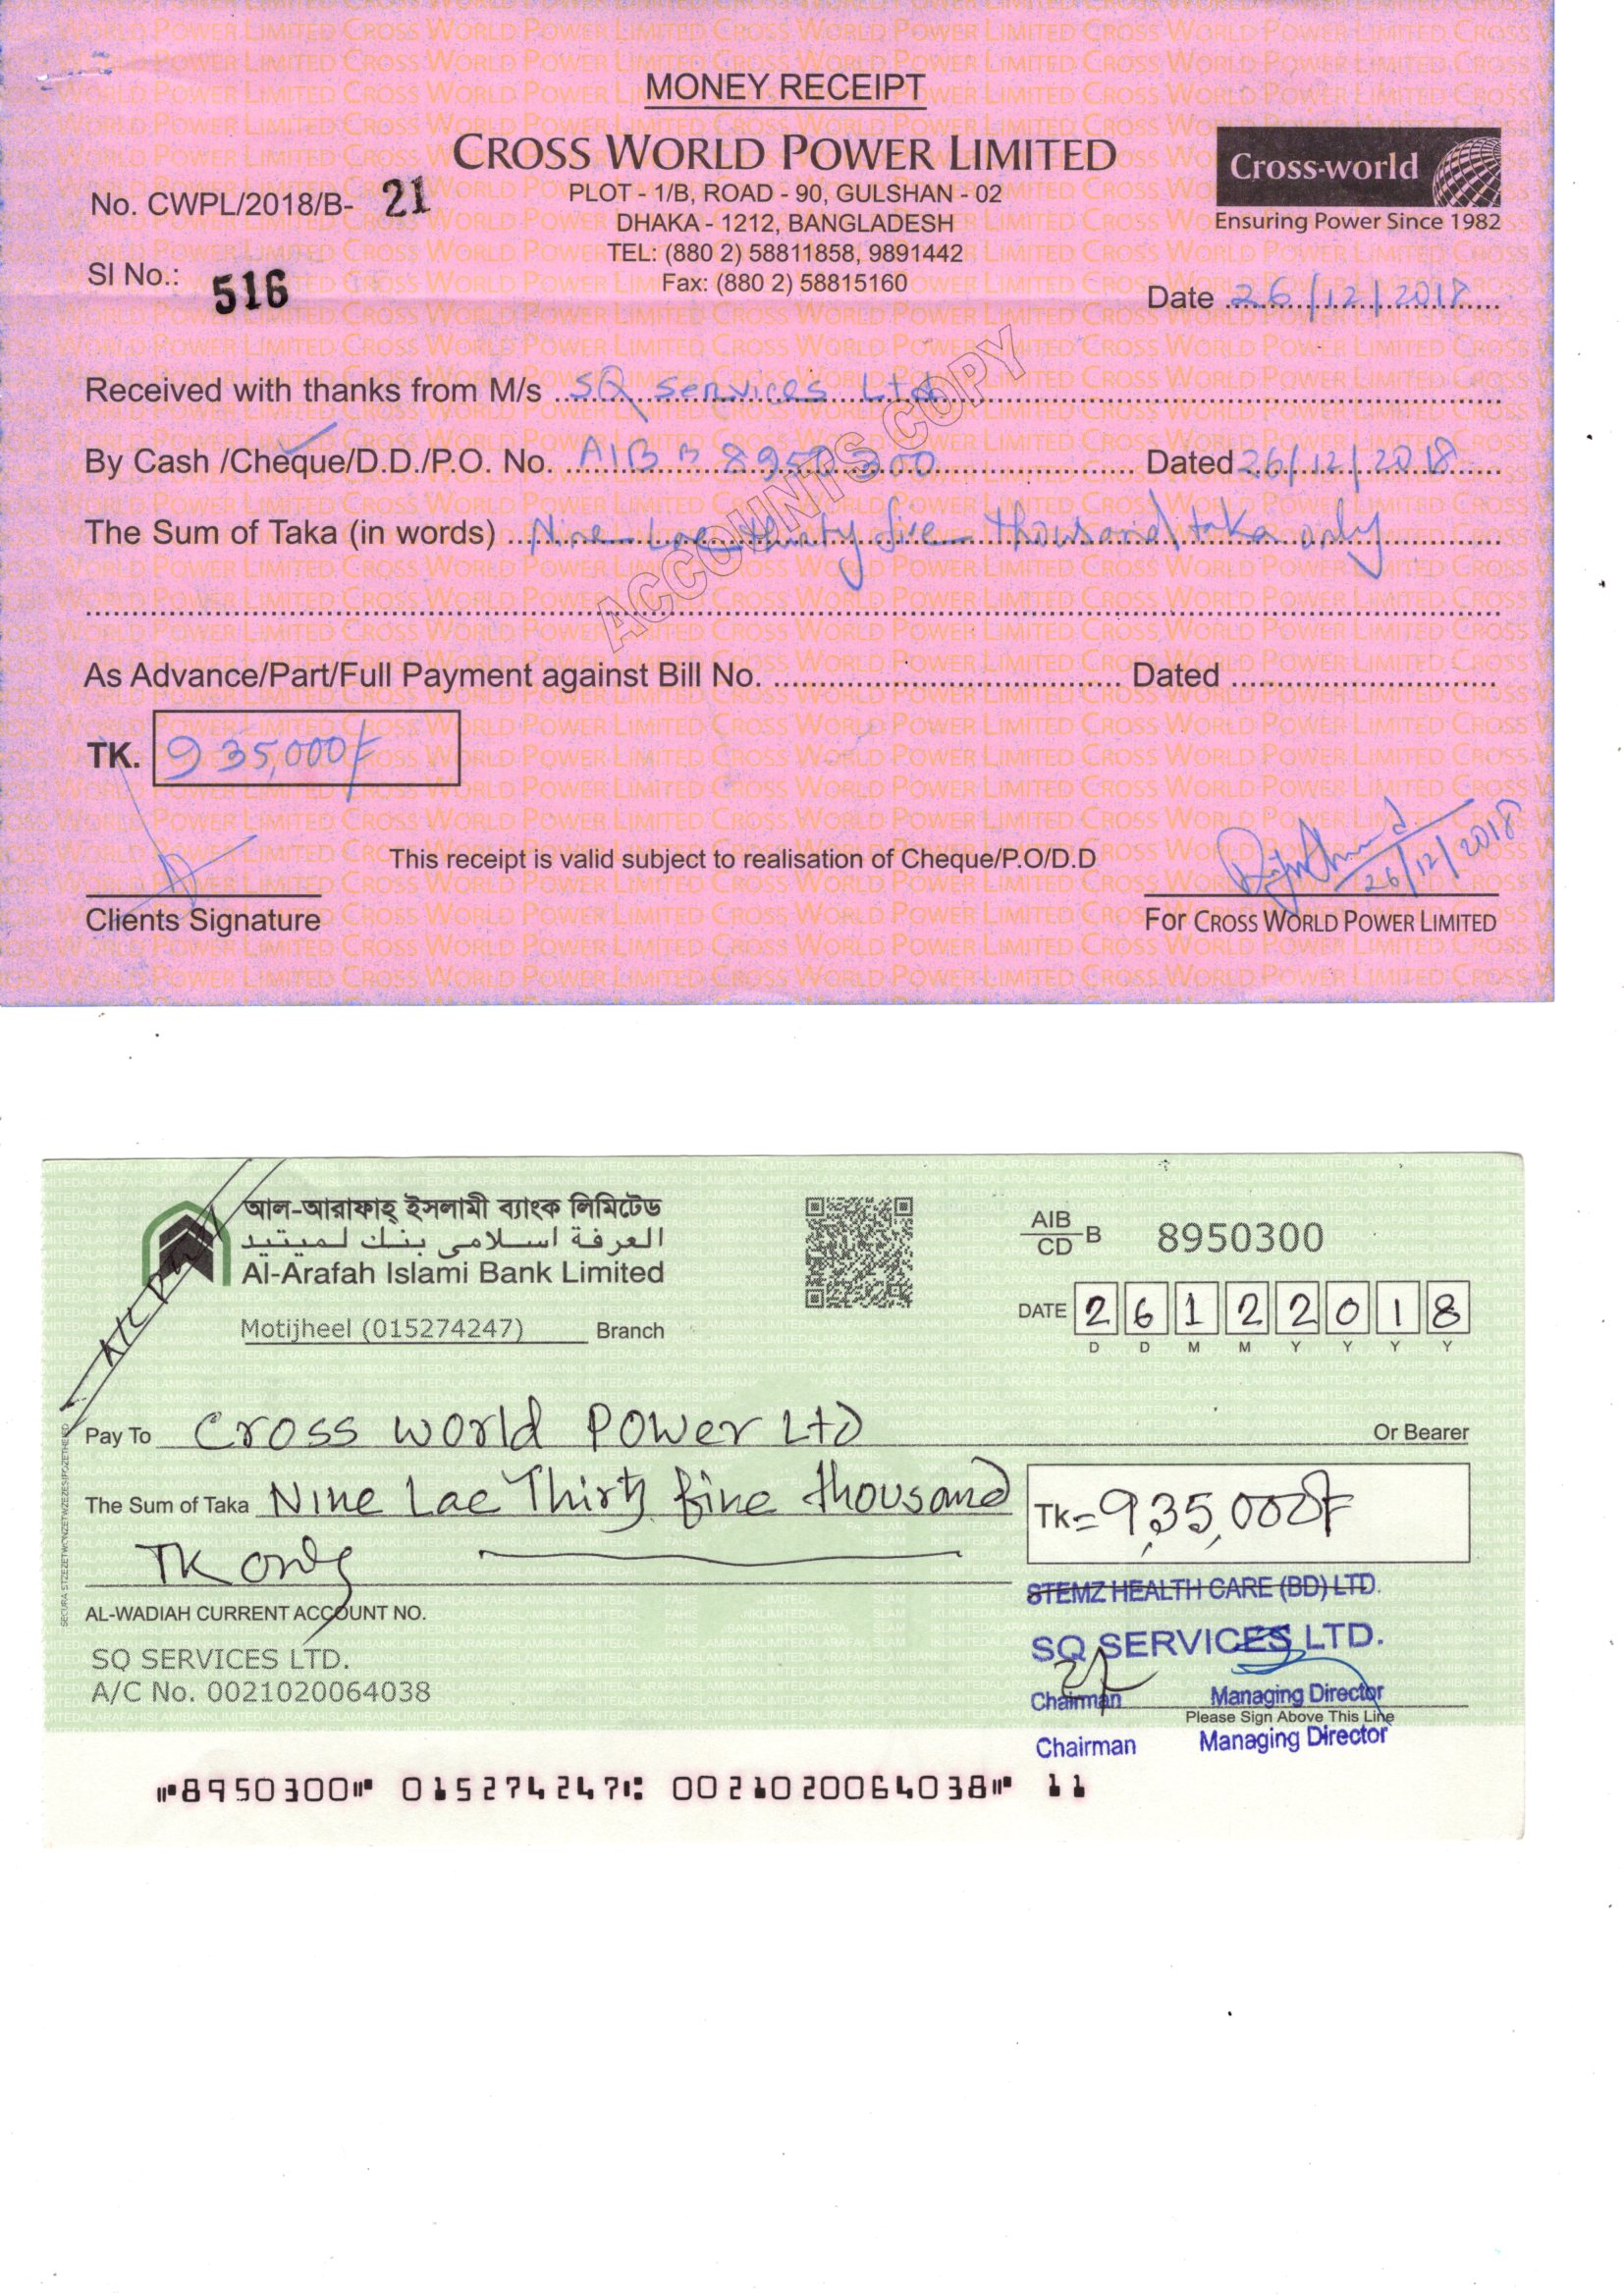 MONEY RECEIPT
CROSS WORLD POWER LIMITED
PLOT - 1/B, ROAD - 90, GULSHAN - 02
DHAKA - 1212, BANGLADESH
TEL: (880 2) 58811858, 9891442
Fax: (880 2) 58815160
Cross-world
Ensuring Power Since 1982
No. CWPL/2018/B- 21
SI No.: 516
Date 26/12/2018
Received with thanks from M/s SQ Services Ltd
By Cash /Cheque/D.D./P.O. No. AIB B 8950300 Dated 26/12/2018
The Sum of Taka (in words) Nine Lac thirty five thousand taka only
ACCOUNTS COPY
As Advance/Part/Full Payment against Bill No. Dated
TK. 935,000/-
This receipt is valid subject to realisation of Cheque/P.O/D.D
26/12/2018
Clients Signature
For CROSS WORLD POWER LIMITED
আল-আরাফাহ্ ইসলামী ব্যাংক লিমিটেড
العرفة اسلامى بنك لميتيد
Al-Arafah Islami Bank Limited
Motijheel (015274247) Branch
AIB
CD B 8950300
DATE 2 6 1 2 2 0 1 8
D D M M Y Y Y Y
Pay To Cross World Power Ltd Or Bearer
The Sum of Taka Nine Lac Thirty five thousand
TK only
Tk=935,000/-
AL-WADIAH CURRENT ACCOUNT NO.
SQ SERVICES LTD.
A/C No. 0021020064038
STEMZ HEALTH CARE (BD) LTD.
SQ SERVICES LTD.
Chairman Managing Director
Please Sign Above This Line
Chairman Managing Director
⑈8950300⑈ 015274247⑆ 0021020064038⑈ 11